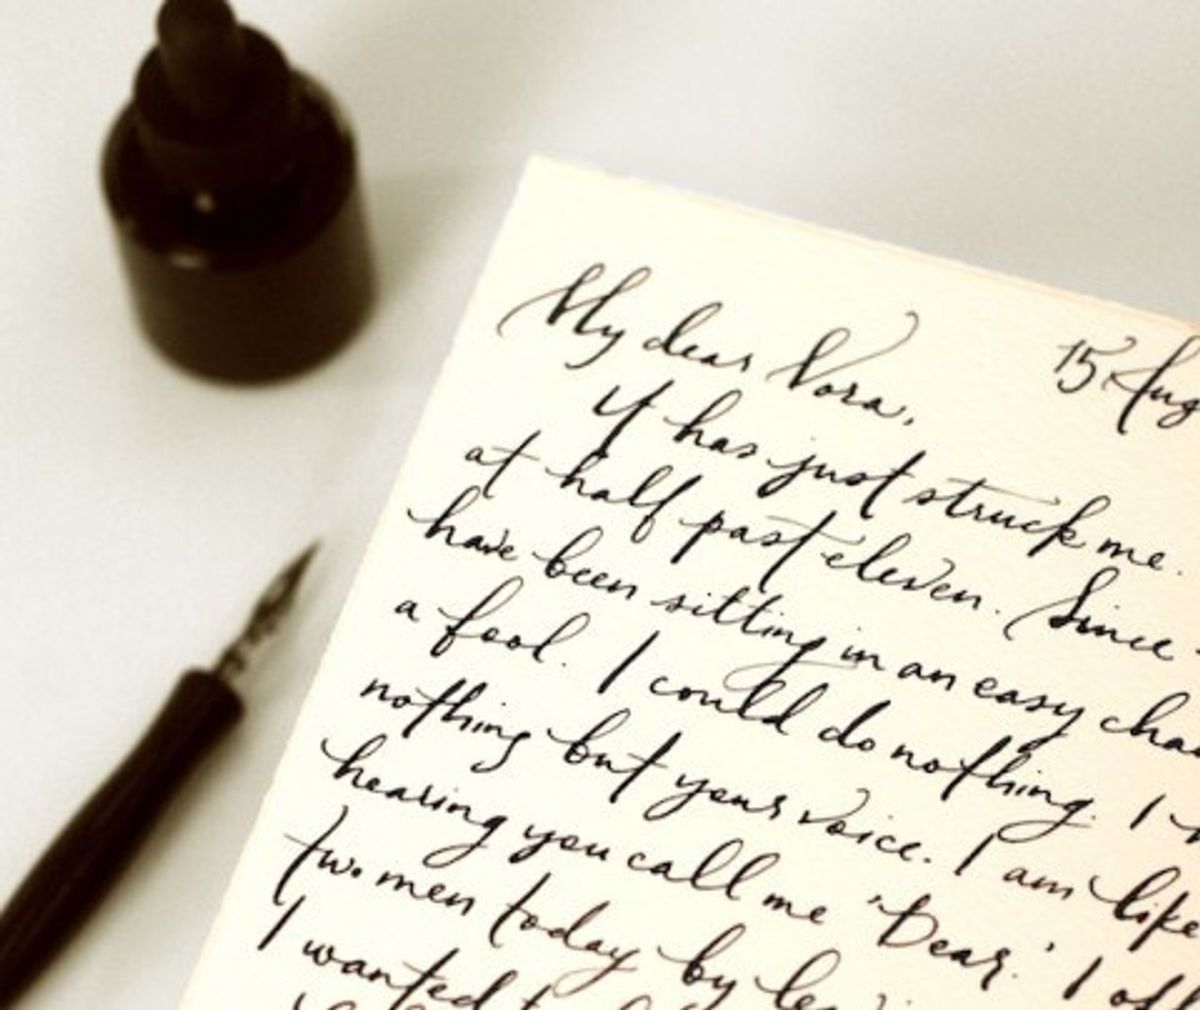 15 Aug
My dear Nora,
It has just struck me.
at half past eleven. Since
have been sitting in an easy cha
a fool. I could do nothing. I
nothing but your voice. I am like
hearing you call me 'Dear.' I of
two men today by
I wanted